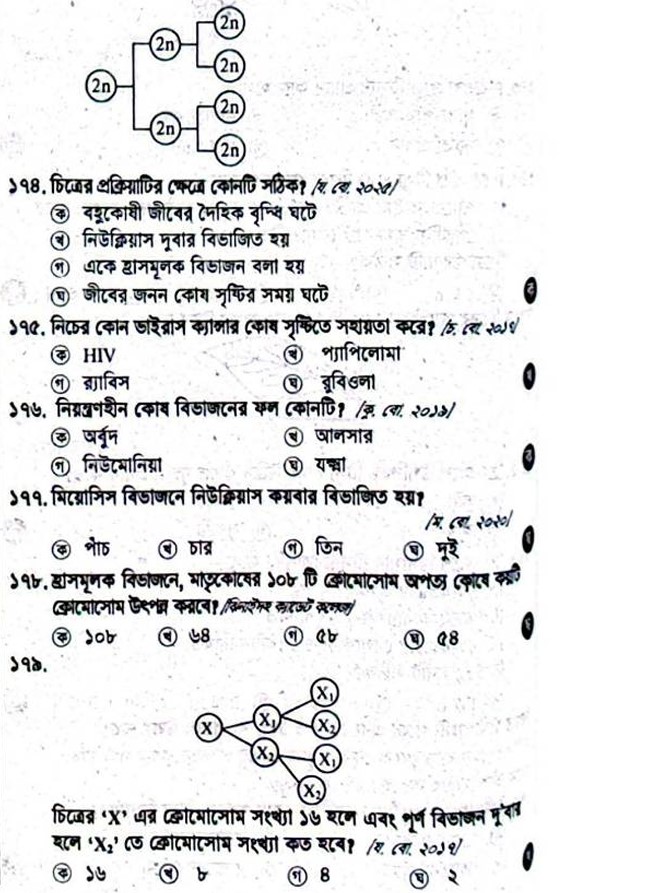 2n
2n
2n
2n
2n
2n
2n
১৭৪. চিত্রের প্রক্রিয়াটির ক্ষেত্রে কোনটি সঠিক? [য. বো. ২০২০]
ক বহুকোষী জীবের দৈহিক বৃদ্ধি ঘটে
খ নিউক্লিয়াস দুবার বিভাজিত হয়
গ একে হ্রাসমূলক বিভাজন বলা হয়
ঘ জীবের জনন কোষ সৃষ্টির সময় ঘটে
১৭৫. নিচের কোন ভাইরাস ক্যান্সার কোষ সৃষ্টিতে সহায়তা করে?
ক HIV খ প্যাপিলোমা
গ র‍্যাবিস ঘ রুবিওলা
১৭৬. নিয়ন্ত্রণহীন কোষ বিভাজনের ফল কোনটি? [কু. বো. ২০১৯]
ক অর্বুদ খ আলসার
গ নিউমোনিয়া ঘ যক্ষ্মা
১৭৭. মিয়োসিস বিভাজনে নিউক্লিয়াস কয়বার বিভাজিত হয়?
বো. ২০২০]
ক পাঁচ খ চার গ তিন ঘ দুই
১৭৮. হ্রাসমূলক বিভাজনে, মাতৃকোষের ১০৮ টি ক্রোমোসোম অপত্য কোষে কয়টি
ক্রোমোসোম উৎপন্ন করবে? [ঝিনাইদহ ক্যাডেট কলেজ]
ক ১০৮ খ ৬৪ গ ৫৮ ঘ ৫৪
১৭৯.
X
X₁
X₂
X₁
X₂
X₁
X₂
চিত্রের ‘X’ এর ক্রোমোসোম সংখ্যা ১৬ হলে এবং পূর্ণ বিভাজন দু'বার
হলে ‘X₂’ তে ক্রোমোসোম সংখ্যা কত হবে?
ক ১৬ খ ৮ গ ৪ ঘ ২